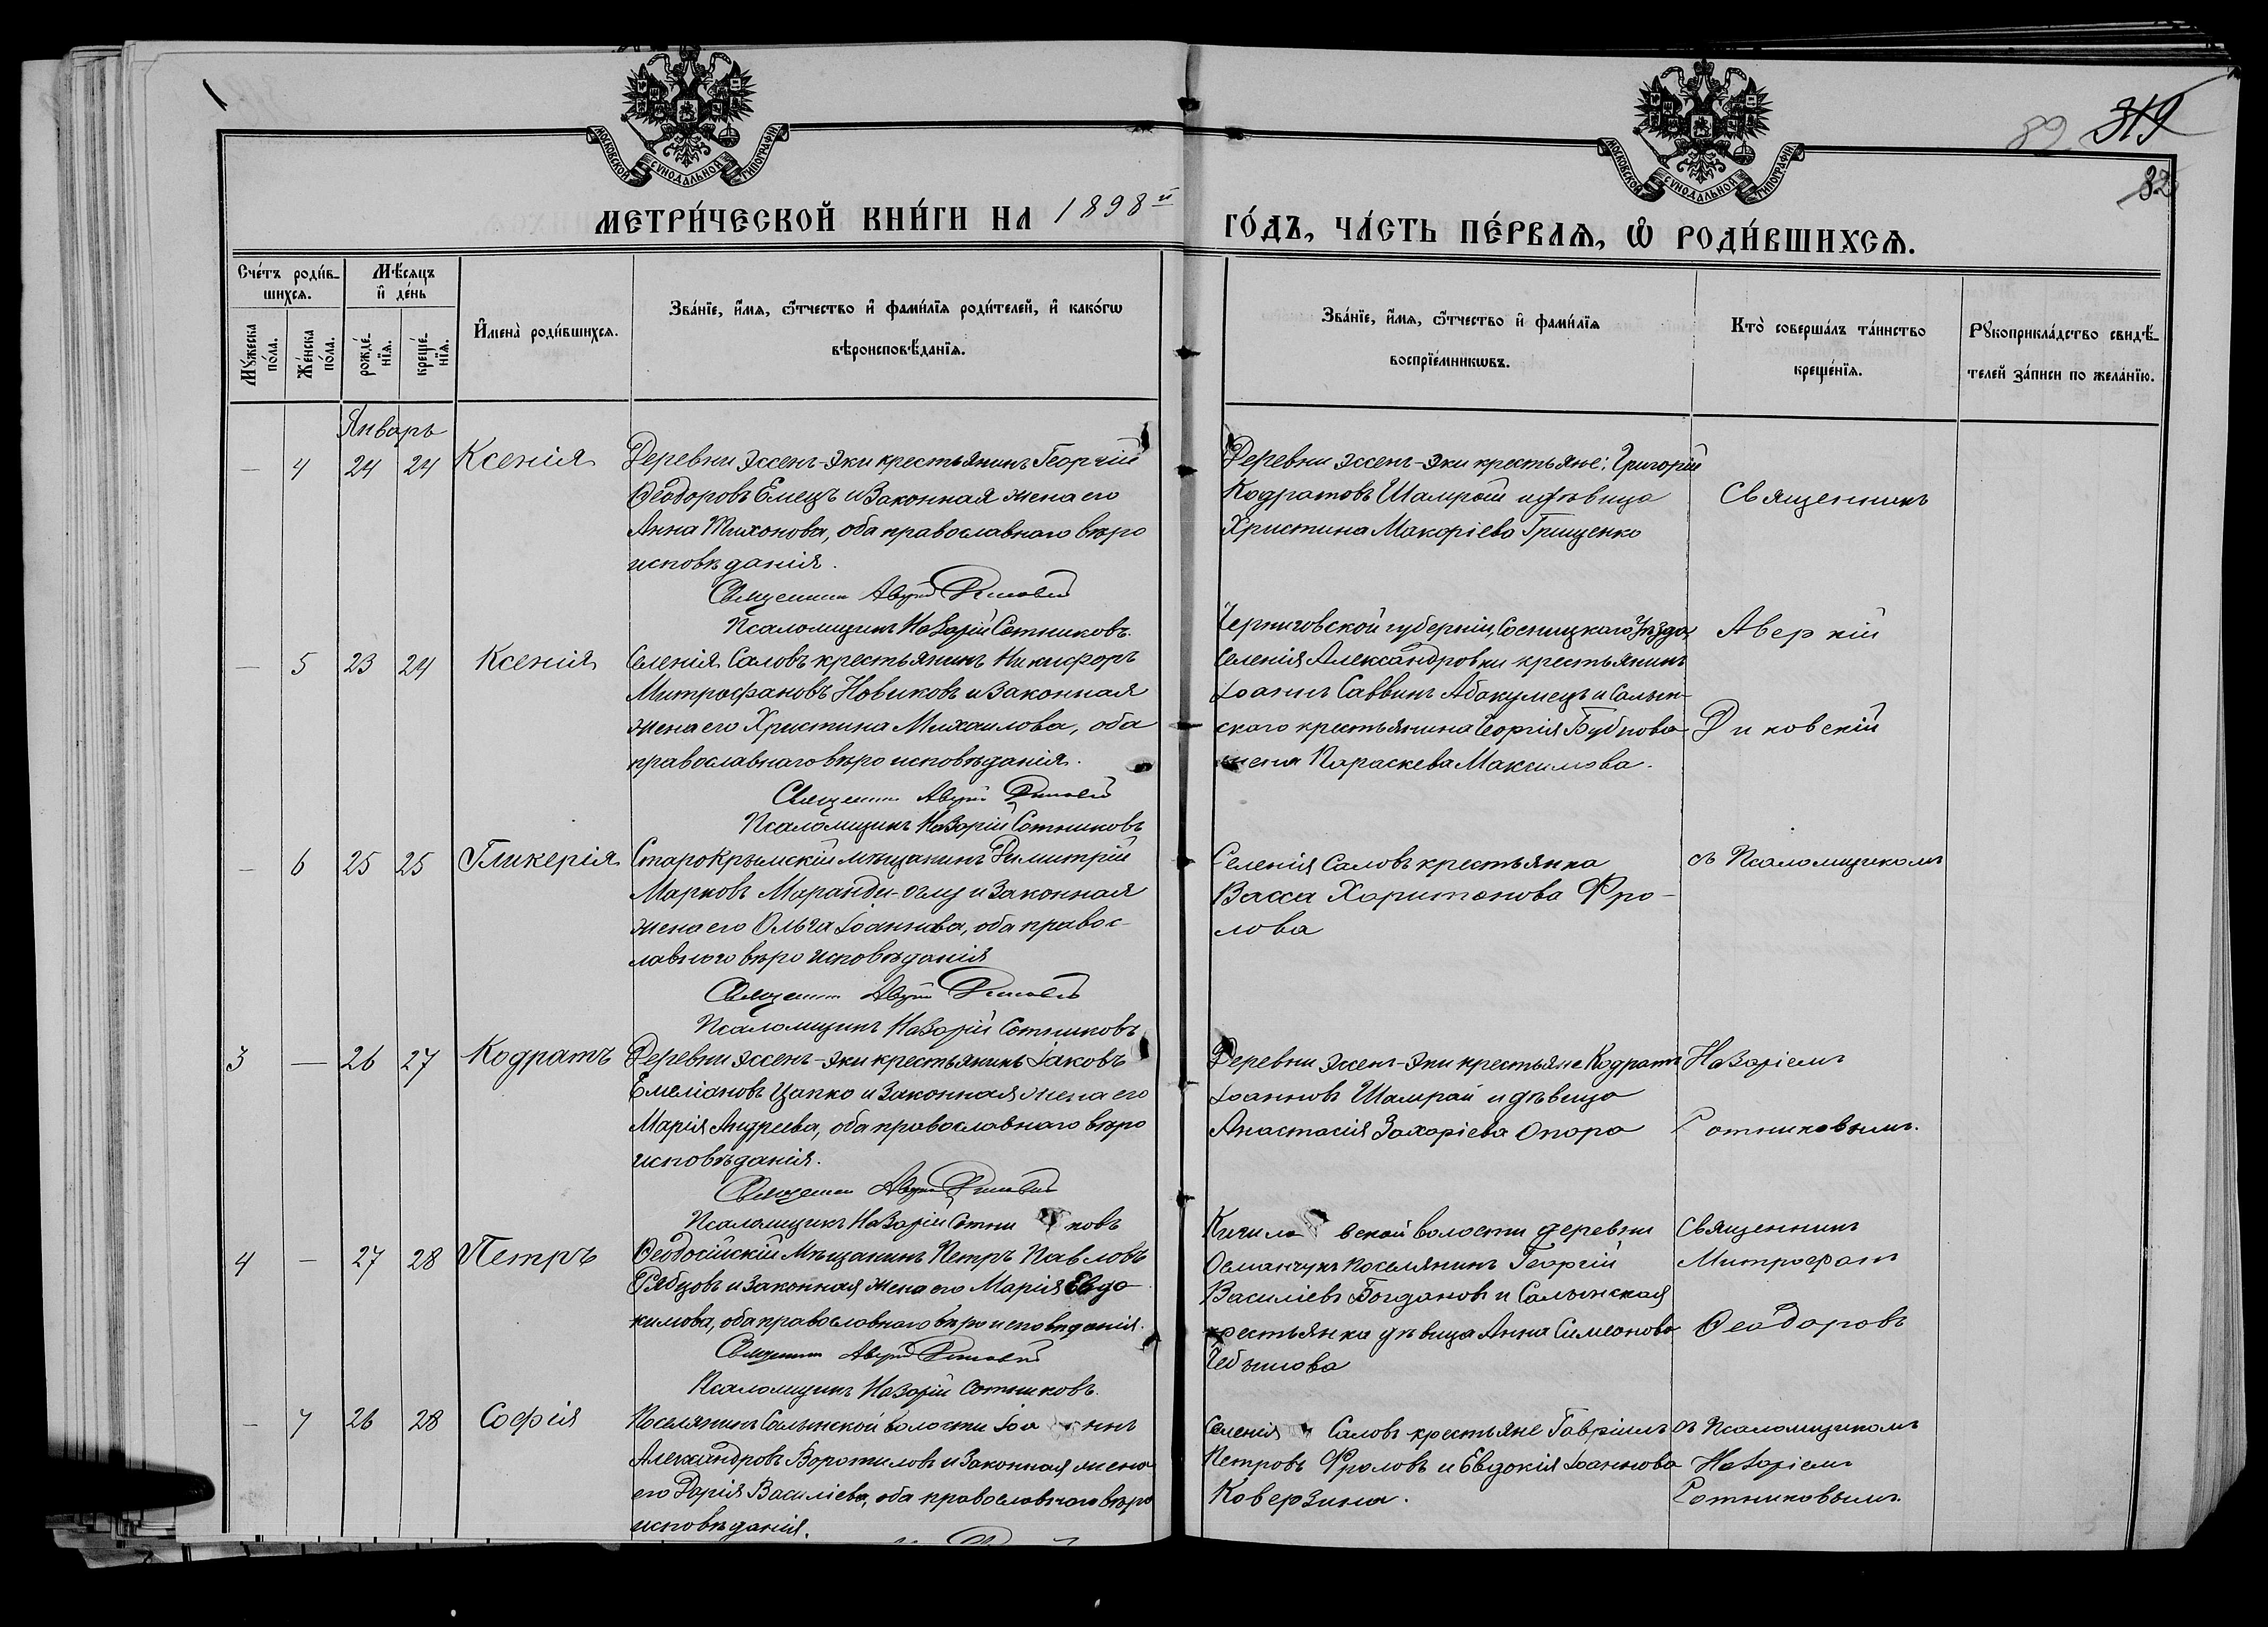 МОСКОВСКОЙ СУНОДАЛЬНОЙ ТИПОГРАФІИ
МОСКОВСКОЙ СУНОДАЛЬНОЙ ТИПОГРАФІИ
89 319
82
МЕТРИ́ЧЕСКОЙ КНИ́ГИ НА 1898й ГО́ДЪ, ЧА́СТЬ ПЕ́РВАѦ, Ѡ҆ РОДИ́ВШИХСѦ.
Сче́тъ роди́в-
шихсѧ.
Мѣ́сѧцъ
и҆ де́нь
Мꙋ́жеска по́ла.
Же́нска по́ла.
рожде́-
нїѧ.
креще́-
нїѧ.
И҆мена̀ роди́вшихсѧ.
Зва́нїе, и҆́мѧ, ѻ҆́тчество и҆ фами́лїѧ роди́телей, и҆ како́гѡ
вѣроисповѣ́данїѧ.
Зва́нїе, и҆́мѧ, ѻ҆́тчество и҆ фами́лїѧ
воспрїе́мникѡвъ.
Кто̀ соверша́лъ та́инство
креще́нїѧ.
Рꙋкоприкла́дство свидѣ́-
телей за́писи по жела́нїю.
Январь
— 4 24 24 Ксенія
Деревни Эссенъ-Эки крестьянинъ Георгій
Ѳеодоровъ Емецъ и законная жена его
Анна Тихонова, оба православнаго вѣро
исповѣданія.
Священникъ Аверкій Диковскій
Псаломщикъ Назарій Сотниковъ.
Деревни Эссенъ-Эки крестьяне: Григорій
Кодратовъ Шамрай и дѣвица
Христина Макаріева Грищенко
Священникъ
— 5 23 24 Ксенія
Селенія Саловъ крестьянинъ Никифоръ
Митрофановъ Новиковъ и законная
жена его Христина Михаилова, оба
православнаго вѣро исповѣданія.
Священникъ Аверкій Диковскій
Псаломщикъ Назарій Сотниковъ
Черниговской губерніи, Сосницкаго Уѣзда,
Селенія Александровки крестьянинъ
Іоаннъ Саввинъ Абакумецъ и Салын-
скаго крестьянина Георгія Бубнова
жена Параскева Максимова.
Аверкій
Диковскій
— 6 25 25 Гликерія
Старокрымскій мѣщанинъ Димитрій
Марковъ Маранди-оглу и законная
жена его Ольга Іоаннова, оба правос-
лавнаго вѣро исповѣданія
Священникъ Аверкій Диковскій
Псаломщикъ Назарій Сотниковъ
Селенія Саловъ крестьянка
Васса Харитонова Фро-
лова
съ Псаломщикомъ
3 — 26 27 Кодратъ
Деревни Эссенъ-Эки крестьянинъ Іаковъ
Емеліановъ Цапко и законная жена его
Марія Андреева, оба православнаго вѣро
исповѣданія.
Священникъ Аверкій Диковскій
Псаломщикъ Назарій Сотниковъ
Деревни Эссенъ-Эки крестьяне Кодратъ
Іоанновъ Шамрай и дѣвица
Анастасія Захаріева Опара
Назаріемъ
Сотниковымъ.
4 — 27 28 Петръ
Ѳеодосійскій Мѣщанинъ Петръ Павловъ
Рябцовъ и законная жена его Марія Евдо
кимова, оба православнаго вѣро исповѣданія.
Священникъ Аверкій Диковскій
Псаломщикъ Назарій Сотниковъ.
вской волости деревни
Османчукъ поселянинъ Георгій
Василіевъ Богдановъ и Салынская
крестьянка дѣвица Анна Симеонова
Священникъ
Митрофанъ
Ѳеодоровъ
— 7 26 28 Софія
Поселянинъ Салынской волости Іоаннъ
Александровъ Воротиловъ и законная жена
его Дарія Василіева, оба православнаго вѣро
исповѣданія.
Селенія Саловъ крестьяне Гавріилъ
Петровъ Фроловъ и Евдокія Іоаннова
Коверзина.
съ Псаломщикомъ
Назаріемъ
Сотниковымъ.